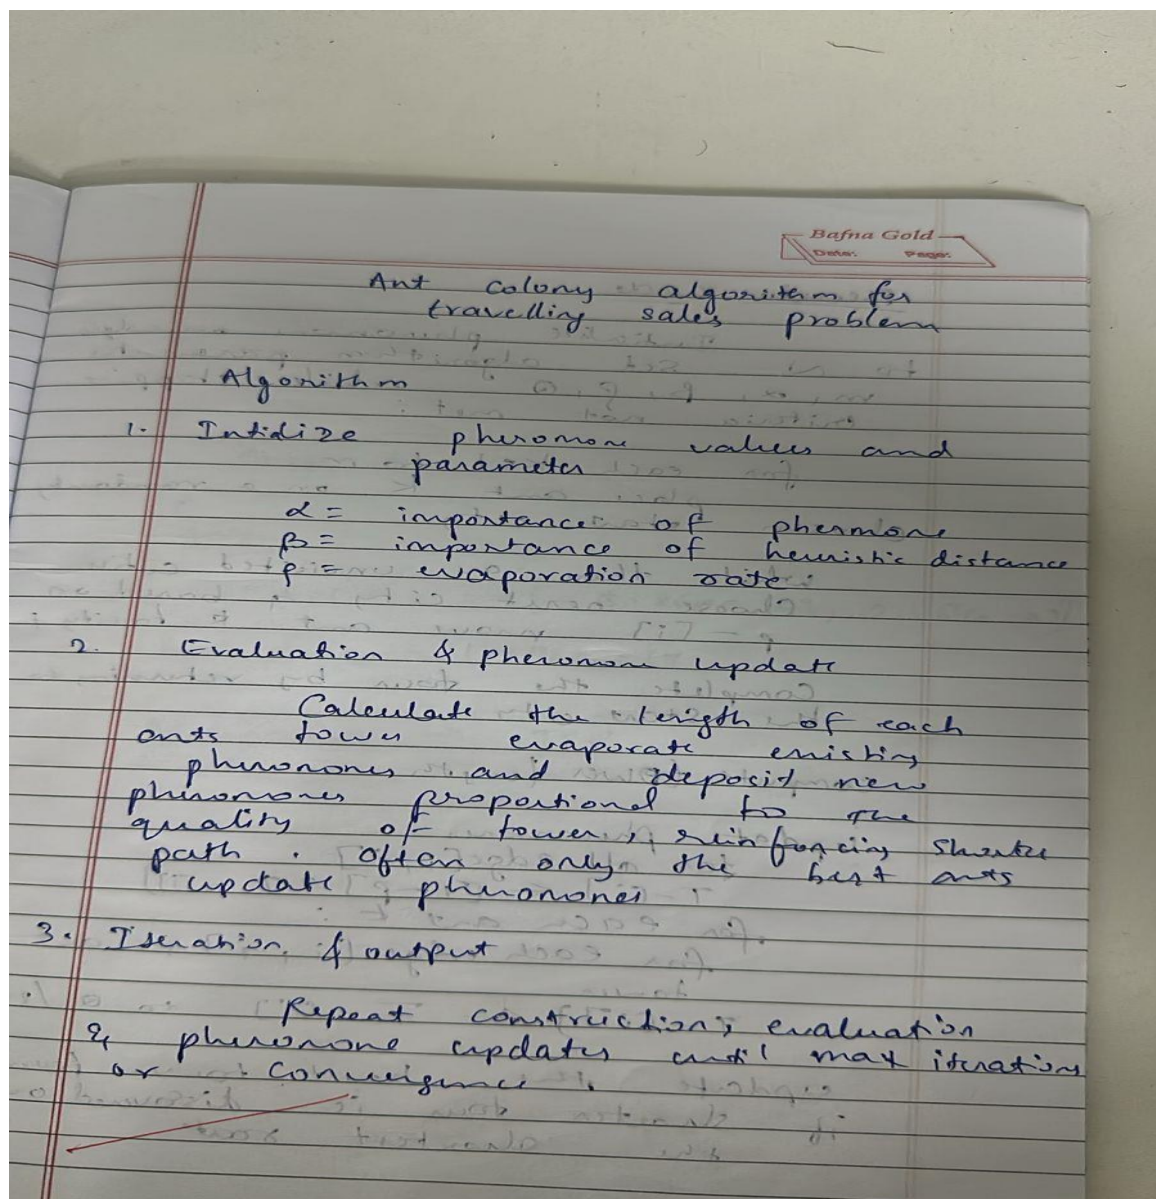 Bafna Gold
Date: Page:
Ant colony algorithm for
travelling sales problem
Algorithm
1. Intidize pheromone values and
parameter
α = importance of phermone
β = importance of heuristic distance
ρ = evaporation rate.
2. Evaluation & pheromone update
Calculate the length of each
ants tower evaporate existing
pheromones and deposit new
pheromones proportional to the
quality of tower, reinforcing shorter
path. Often only the best ants
update pheromones
3. Iteration & output
Repeat construction, evaluation
& pheromone updates until max iterations
or convergence.